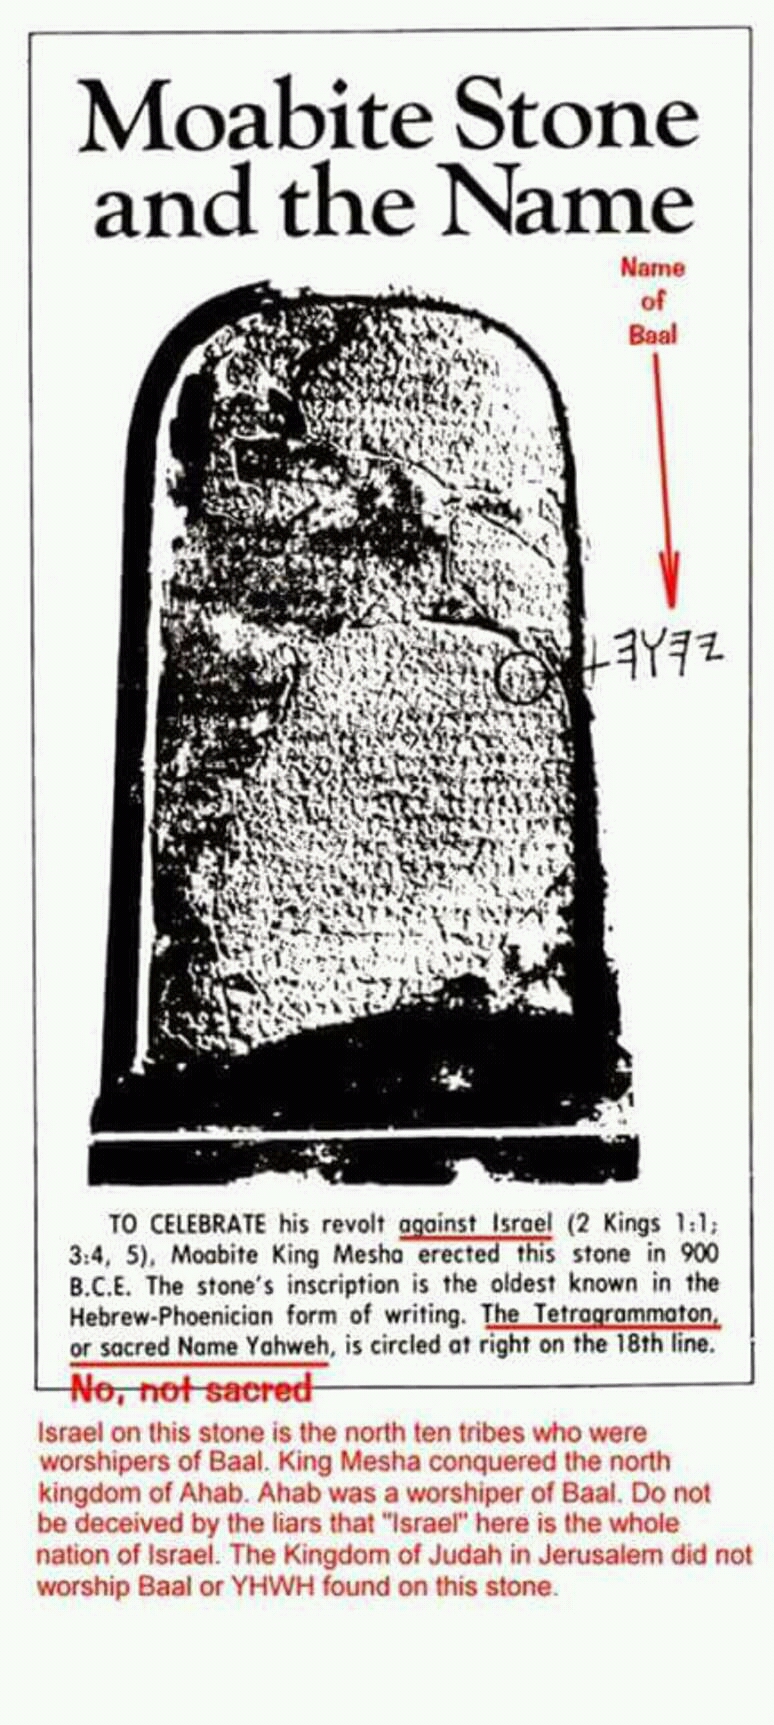 Moabite Stone
and the Name
Name
of
Baal
𐤉𐤄𐤅𐤄
TO CELEBRATE his revolt against Israel (2 Kings 1:1;
3:4, 5), Moabite King Mesha erected this stone in 900
B.C.E. The stone's inscription is the oldest known in the
Hebrew-Phoenician form of writing. The Tetragrammaton,
or sacred Name Yahweh, is circled at right on the 18th line.
No, not sacred
Israel on this stone is the north ten tribes who were
worshipers of Baal. King Mesha conquered the north
kingdom of Ahab. Ahab was a worshiper of Baal. Do not
be deceived by the liars that "Israel" here is the whole
nation of Israel. The Kingdom of Judah in Jerusalem did not
worship Baal or YHWH found on this stone.